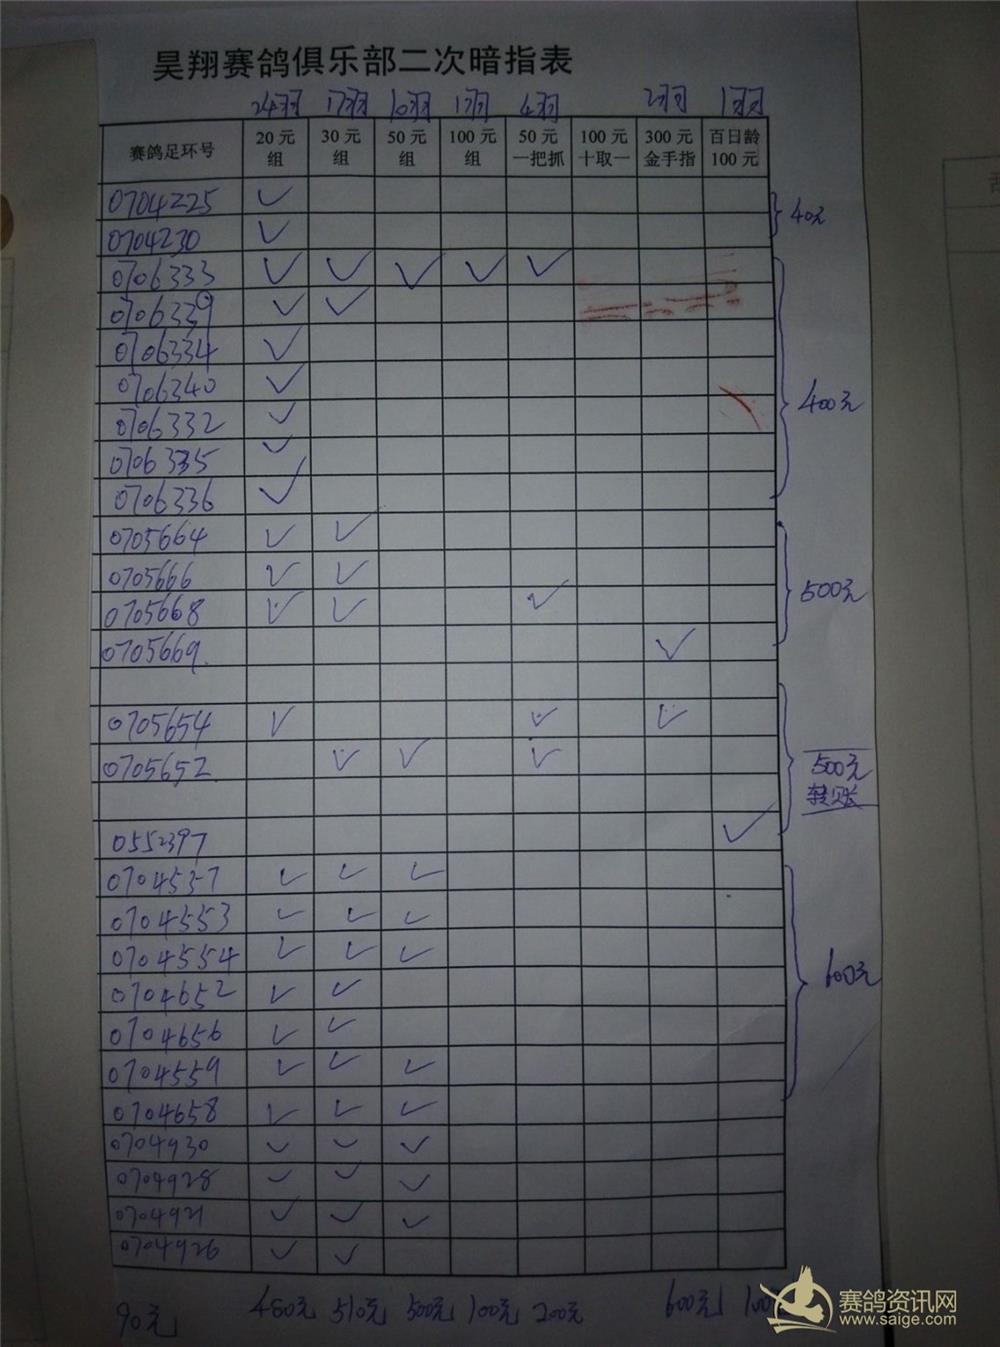 昊翔赛鸽俱乐部二次暗指表
24羽 17羽 10羽 1羽 4羽 2羽 1羽
赛鸽足环号 20元组 30元组 50元组 100元组 50元一把抓 100元十取一 300元金手指 百日龄100元
0704225 ✓
0704230 ✓
40元
0706333 ✓ ✓ ✓ ✓ ✓
0706339 ✓ ✓
0706334 ✓
0706340 ✓
0706332 ✓
400元
0706335 ✓
0706336 ✓
0705664 ✓ ✓
0705666 ✓ ✓
0705668 ✓ ✓ ✓
500元
0705669 ✓
0705654 ✓ ✓ ✓
0705652 ✓ ✓ ✓
500元
转账
0552397 ✓
0704537 ✓ ✓ ✓
0704553 ✓ ✓ ✓
0704554 ✓ ✓ ✓
600元
0704652 ✓ ✓
0704656 ✓ ✓
0704559 ✓ ✓ ✓
0704658 ✓ ✓ ✓
0704930 ✓ ✓ ✓
0704928 ✓ ✓ ✓
0704921 ✓ ✓ ✓
0704926 ✓ ✓
90元 480元 510元 500元 100元 200元 600元 100
赛鸽资讯网
www.saige.com